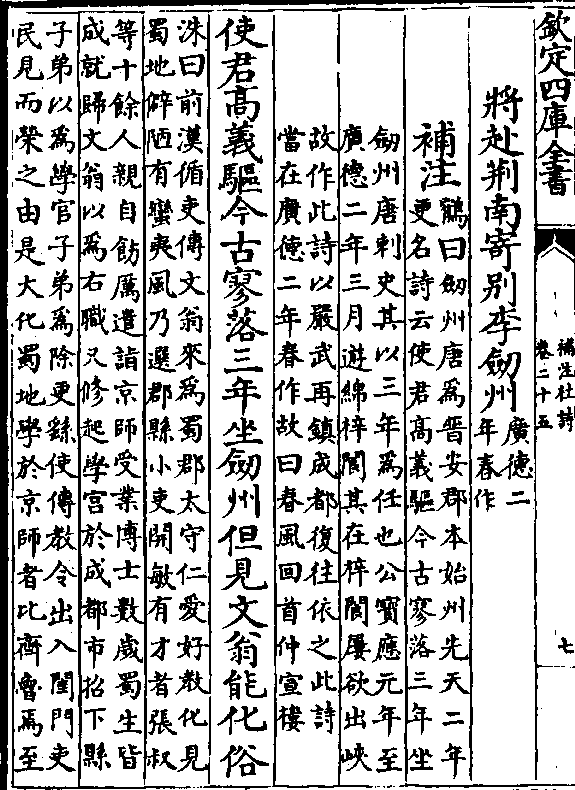 欽定四庫全書
補注杜詩
卷二十五
七
將赴荆南寄别李劒州
廣德二
年春作
補注
鶴曰劒州唐為晋安郡本始州先天二年
更名詩云使君高義驅今古寥落三年坐
劒州唐刺史其以三年為任也公寳應元年至
廣德二年三月遊綿梓閬其在梓閬屢欲出峽
故作此詩以嚴武再鎮成都復往依之此詩
當在廣德二年春作故曰春風回首仲宣樓
使君高義驅今古寥落三年坐劒州但見文翁能化俗
洙曰前漢循吏傳文翁來為蜀郡太守仁愛好教化見
蜀地僻陋有蠻夷風乃選郡縣小吏開敏有才者張叔
等十餘人親自飭厲遣詣京師受業博士數歲蜀生皆
成就歸文翁以為右職又修起學宫於成都市招下縣
子弟以為學官子弟為除更繇使傳教令出入閨門吏
民見而榮之由是大化蜀地學於京師者比齊魯焉至